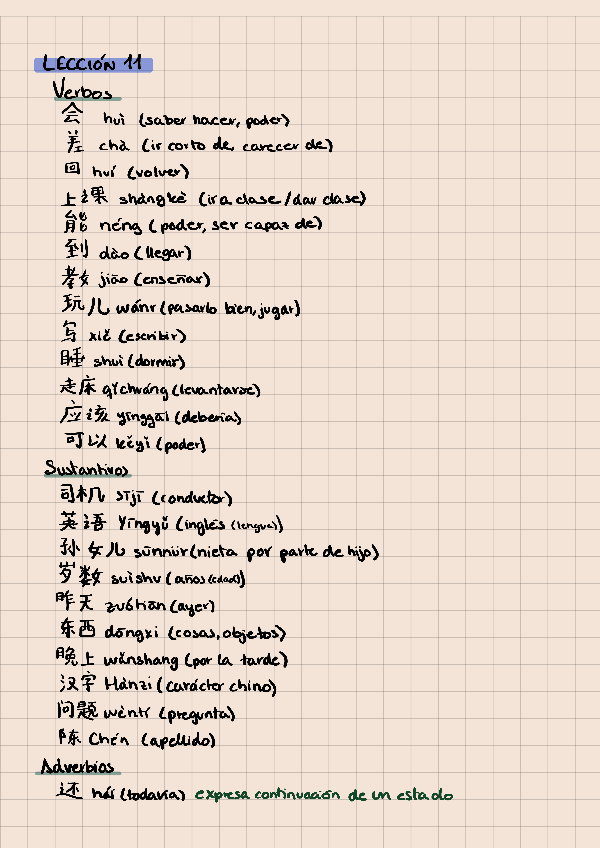 LECCIÓN 11
Verbos
会 huì (saber hacer, poder)
差 chà (ir corto de, carecer de)
回 huí (volver)
上课 shàngkè (ir a clase/dar clase)
能 néng (poder, ser capaz de)
到 dào (llegar)
教 jiāo (enseñar)
玩儿 wánr (pasarlo bien, jugar)
写 xiě (escribir)
睡 shuì (dormir)
走床 qǐchuáng (levantarse)
应该 yīnggāi (debería)
可以 kěyǐ (poder)
Sustantivos
司机 sījī (conductor)
英语 Yīngyǔ (inglés (lengua))
孙女儿 sūnnür (nieta por parte de hijo)
岁数 suìshu (años (edad))
昨天 zuótiān (ayer)
东西 dōngxi (cosas, objetos)
晚上 wǎnshang (por la tarde)
汉字 Hànzì (carácter chino)
问题 wèntí (pregunta)
陈 Chén (apellido)
Adverbios
还 hái (todavía) expresa continuación de un estado